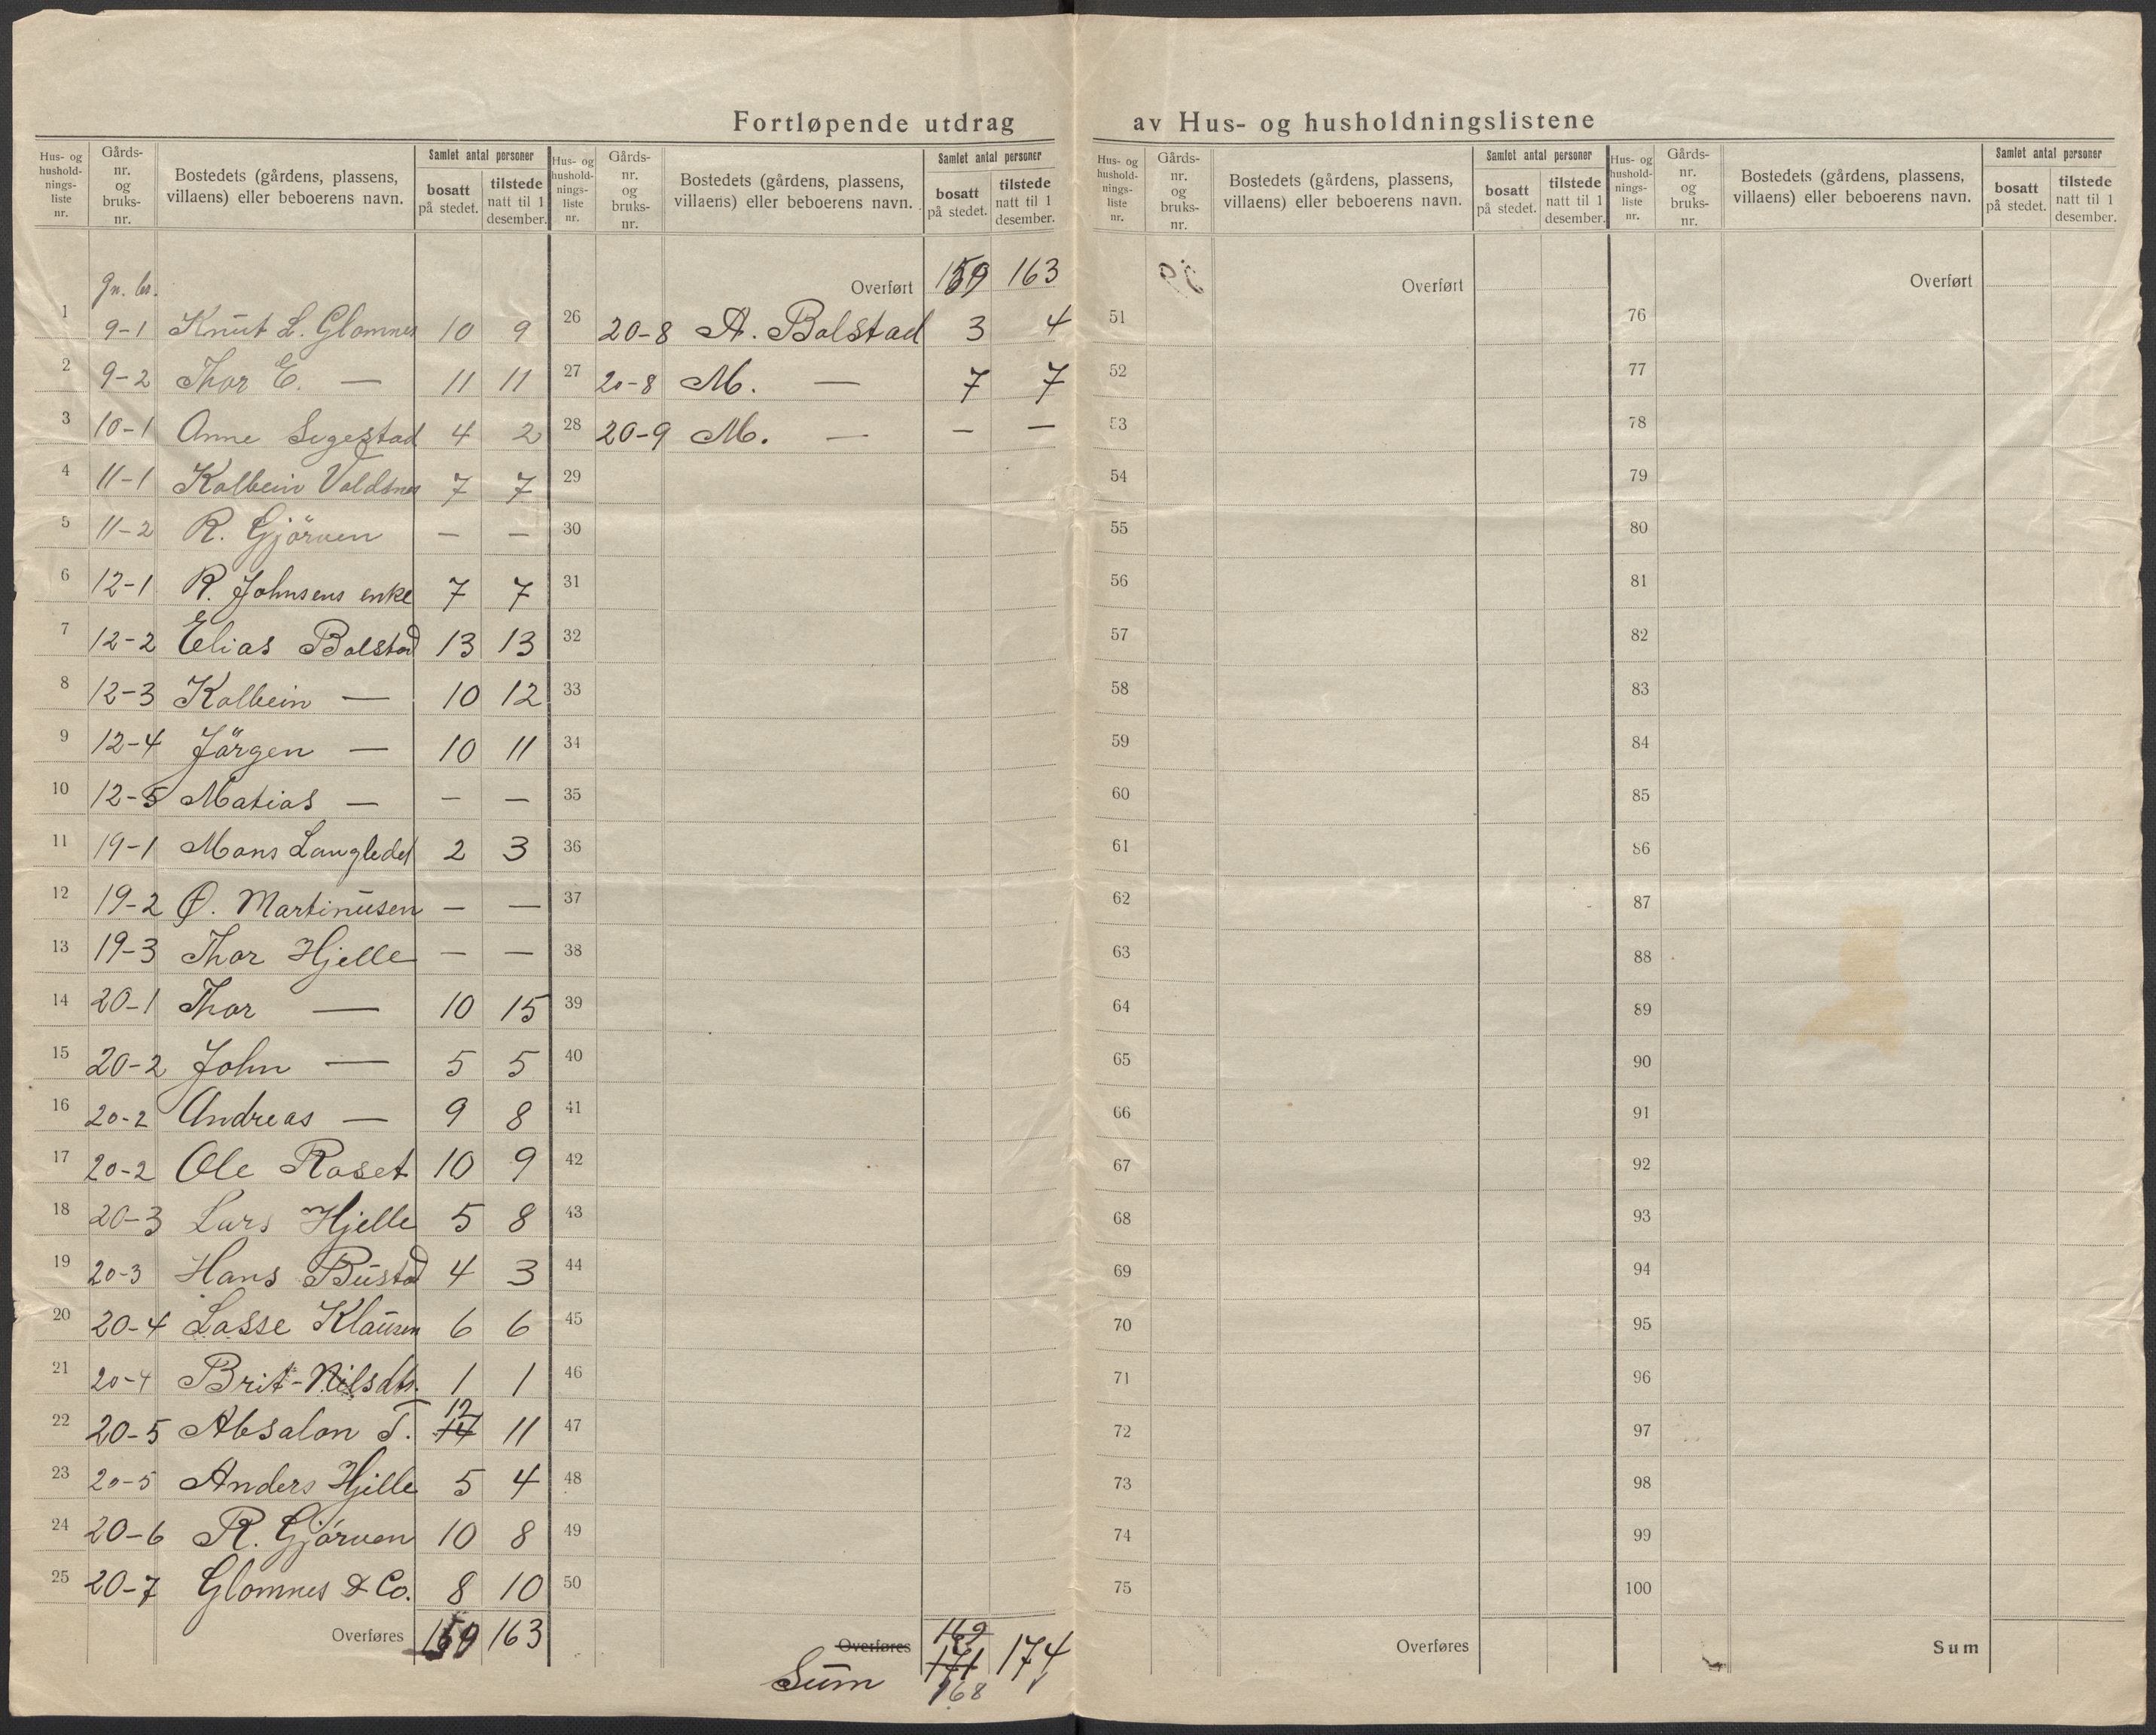 Fortløpende utdrag av Hus- og husholdningslistene
Hus- og hushold-nings-liste nr. Gårds-nr. og bruks-nr. Bostedets (gårdens, plassens, villaens) eller beboerens navn. Samlet antal personer bosatt på stedet. tilstede natt til 1 desember.
Gn. br.
1 9-1 Knut L. Glomnes 10 9
2 9-2 Thor E. — 11 11
3 10-1 Anne Segestad 4 2
4 11-1 Kolbein Voldsnes 7 7
5 11-2 R. Gjörven — —
6 12-1 R. Johnsens enke 7 7
7 12-2 Elias Bolstad 13 13
8 12-3 Kolbein — 10 12
9 12-4 Jörgen — 10 11
10 12-5 Matias — — —
11 19-1 Mons Langledet 2 3
12 19-2 O. Martinusen — —
13 19-3 Thor Hjelle — —
14 20-1 Thor — 10 15
15 20-2 John — 5 5
16 20-2 Andreas — 9 8
17 20-2 Ole Roset 10 9
18 20-3 Lars Hjelle 5 8
19 20-3 Hans Bustad 4 3
20 20-4 Lasse Klausen 6 6
21 20-4 Brit-Nilsdtr. 1 1
22 20-5 Absalon T. 14 12 11
23 20-5 Anders Hjelle 5 4
24 20-6 R. Gjörven 10 8
25 20-7 Glomnes & Co. 8 10
Overføres 159 163
Hus- og hushold-nings-liste nr. Gårds-nr. og bruks-nr. Bostedets (gårdens, plassens, villaens) eller beboerens navn. Samlet antal personer bosatt på stedet. tilstede natt til 1 desember.
Overført 159 163
26 20-8 A. Bolstad 3 4
27 20-8 M. — 7 7
28 20-9 M. — — —
29
30
31
32
33
34
35
36
37
38
39
40
41
42
43
44
45
46
47
48
49
50
Overføres 169
Sum 171 174
168
Hus- og hushold-nings-liste nr. Gårds-nr. og bruks-nr. Bostedets (gårdens, plassens, villaens) eller beboerens navn. Samlet antal personer bosatt på stedet. tilstede natt til 1 desember.
Overført
51
52
53
54
55
56
57
58
59
60
61
62
63
64
65
66
67
68
69
70
71
72
73
74
75
Overføres
Hus- og hushold-nings-liste nr. Gårds-nr. og bruks-nr. Bostedets (gårdens, plassens, villaens) eller beboerens navn. Samlet antal personer bosatt på stedet. tilstede natt til 1 desember.
Overført
76
77
78
79
80
81
82
83
84
85
86
87
88
89
90
91
92
93
94
95
96
97
98
99
100
Sum